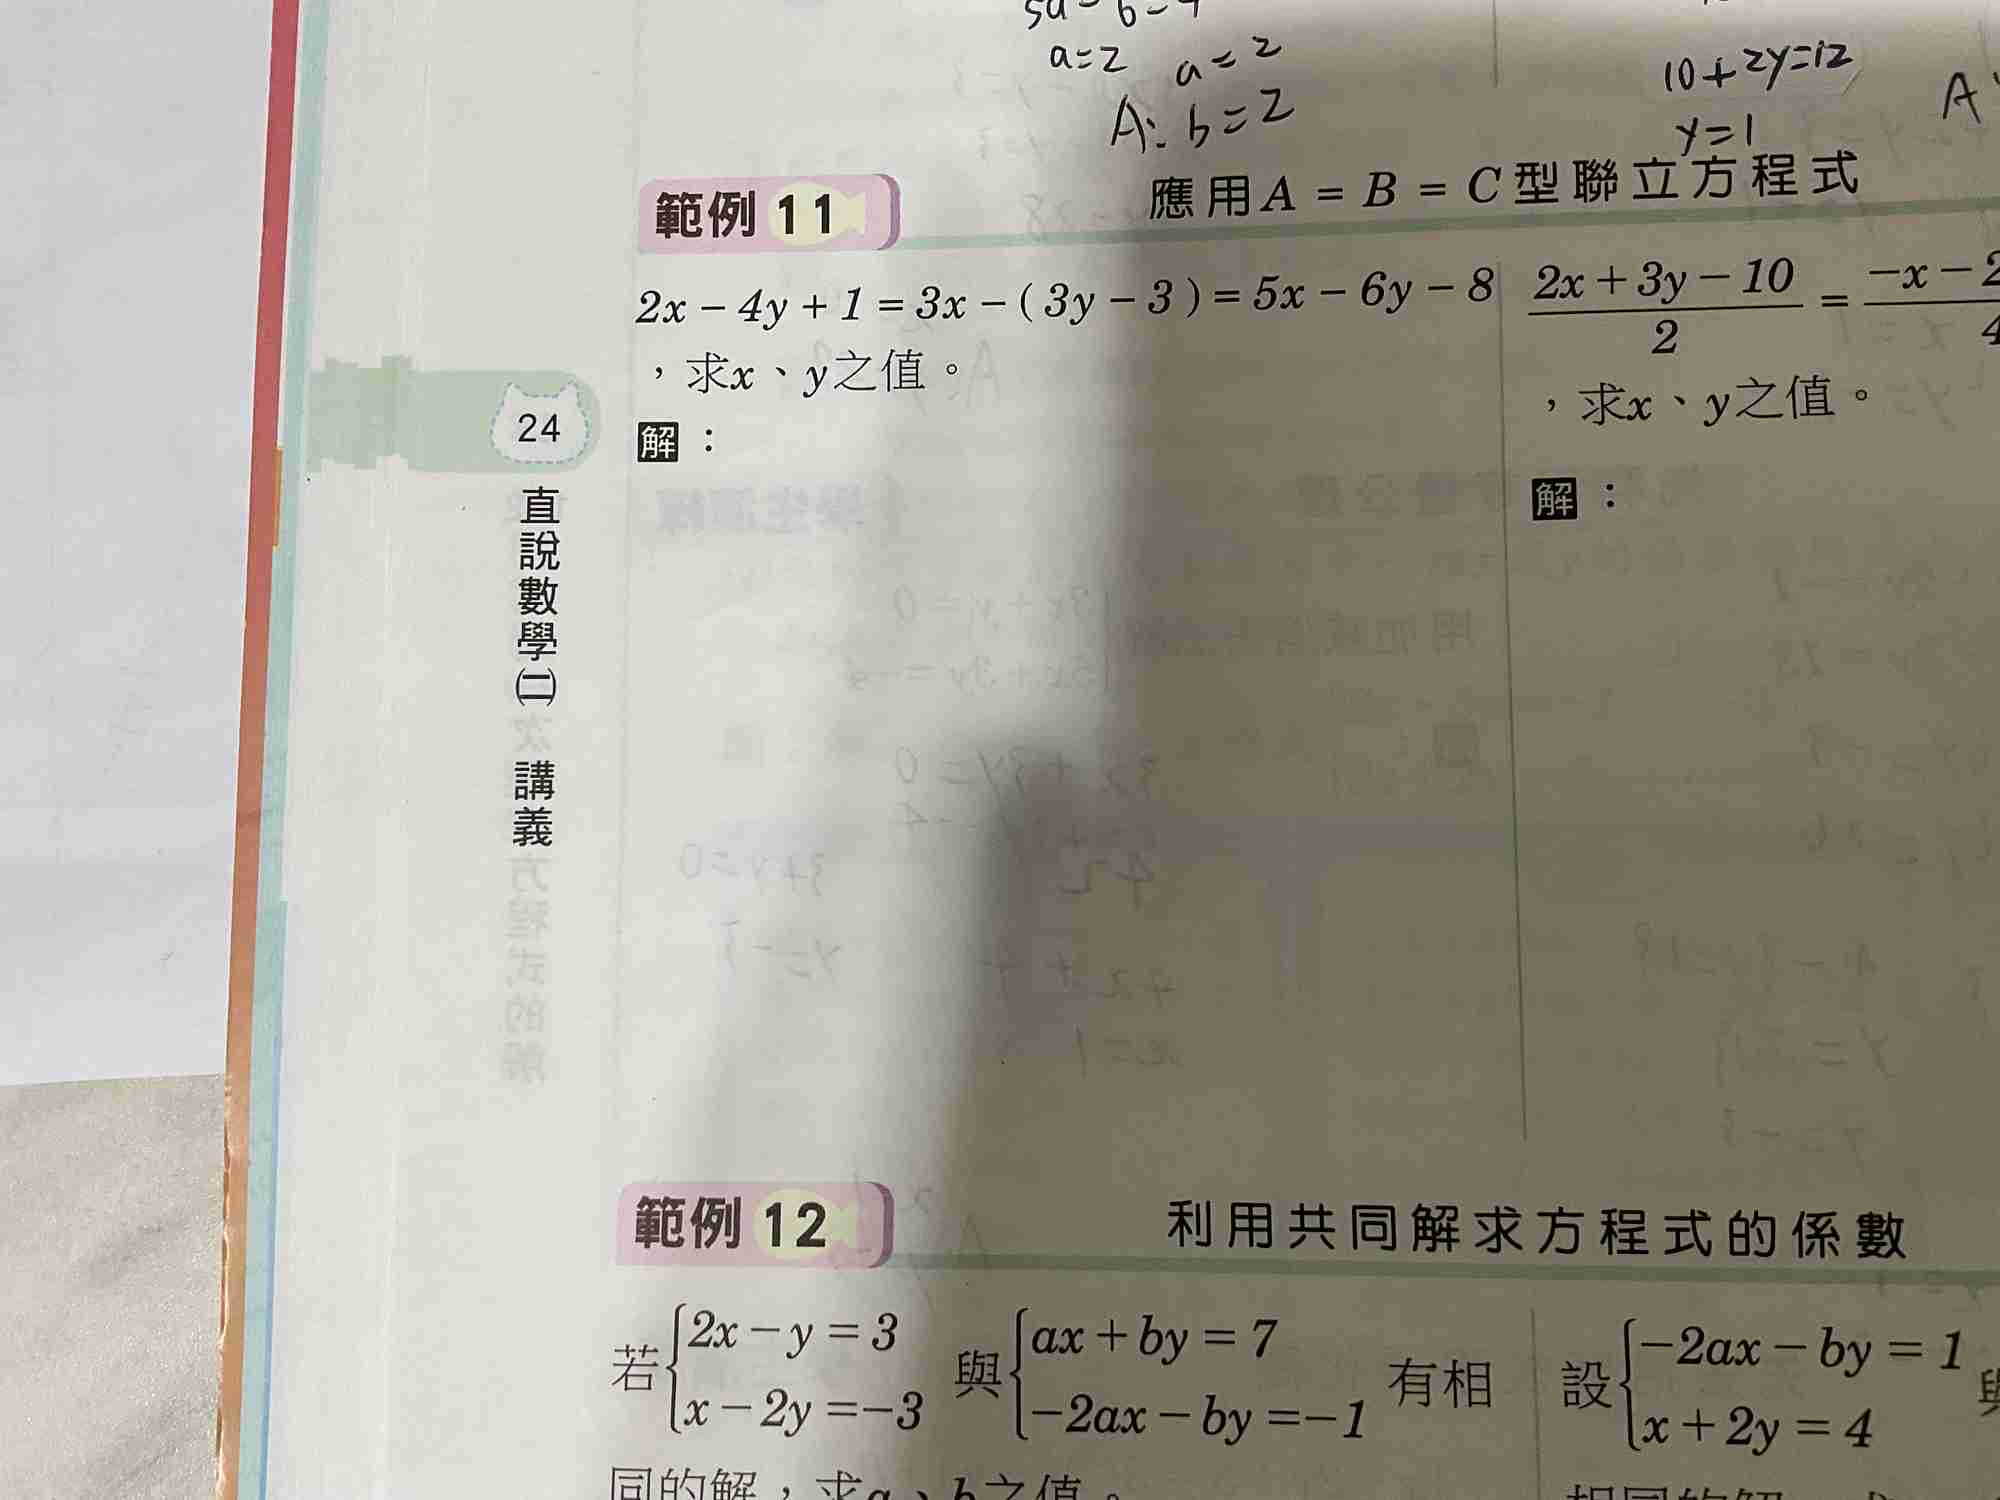 a=2 a=2
A: b=2
10+2y=12
y=1
A
範例 11 應用A = B = C型聯立方程式
2x − 4y + 1 = 3x − ( 3y − 3 ) = 5x − 6y − 8
，求x、y之值。
解：
2x + 3y − 10 / 2 = −x − 2 / 4
，求x、y之值。
解：
24
直說數學(二)講義
範例 12 利用共同解求方程式的係數
若{2x − y = 3 與{ax + by = 7 有相
x − 2y =−3 −2ax − by =−1
同的解，求a、b之值。
設{−2ax − by = 1
x + 2y = 4